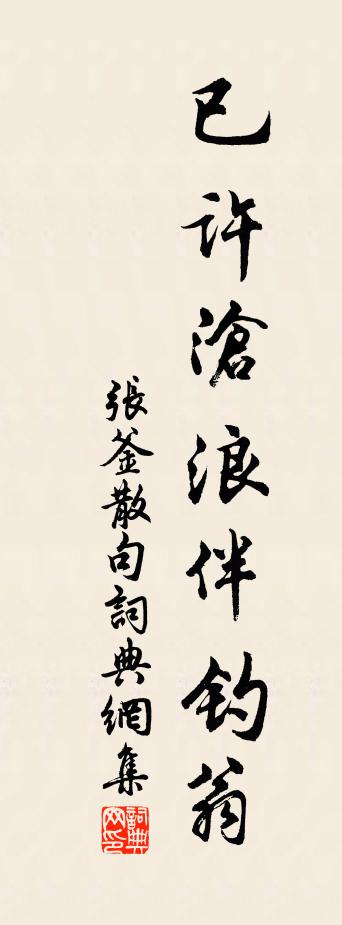 已許滄浪伴釣翁
張釜散句詞典網集
詞典网印